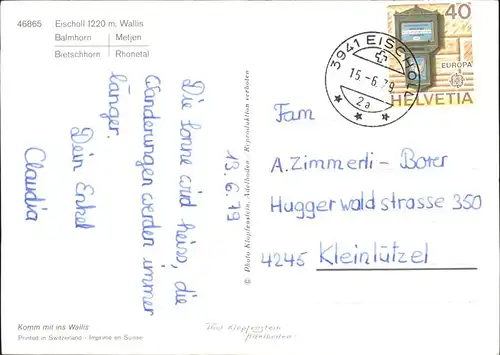 46865
Eischoll 1220 m, Wallis
Balmhorn | Metjen
Bietschhorn | Rhonetal
Die Sonne wird heiss, die
Wanderungen werden immer
länger.
Dein Enkel
Claudia
13.6.79
© Photo Klopfenstein, Adelboden - Reproduktion verboten
3941 EISCHOLL
15.-6.79
2a
40
EUROPA
HELVETIA
Fam
A. Zimmerli - Borer
Huggerwaldstrasse 350
4245 Kleinlützel
Komm mit ins Wallis
Printed in Switzerland - Imprimé en Suisse
Photo Klopfenstein
Adelboden